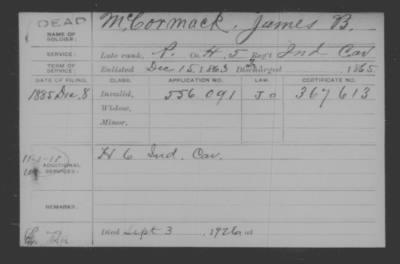 DEAD
McCormack, James B.
NAME OF SOLDIER:
SERVICE: Late rank, P. Co. H, 5 Reg't Ind Cav
TERM OF SERVICE: Enlisted Dec 15, 1863 Discharged 1865
DATE OF FILING. CLASS. APPLICATION NO. LAW. CERTIFICATE NO.
1885 Dec. 8 Invalid, 556 091 367 613
Widow,
Minor,
H 6 Ind. Cav.
ADDITIONAL SERVICES:
REMARKS:
Died Sept 3, 1926, at